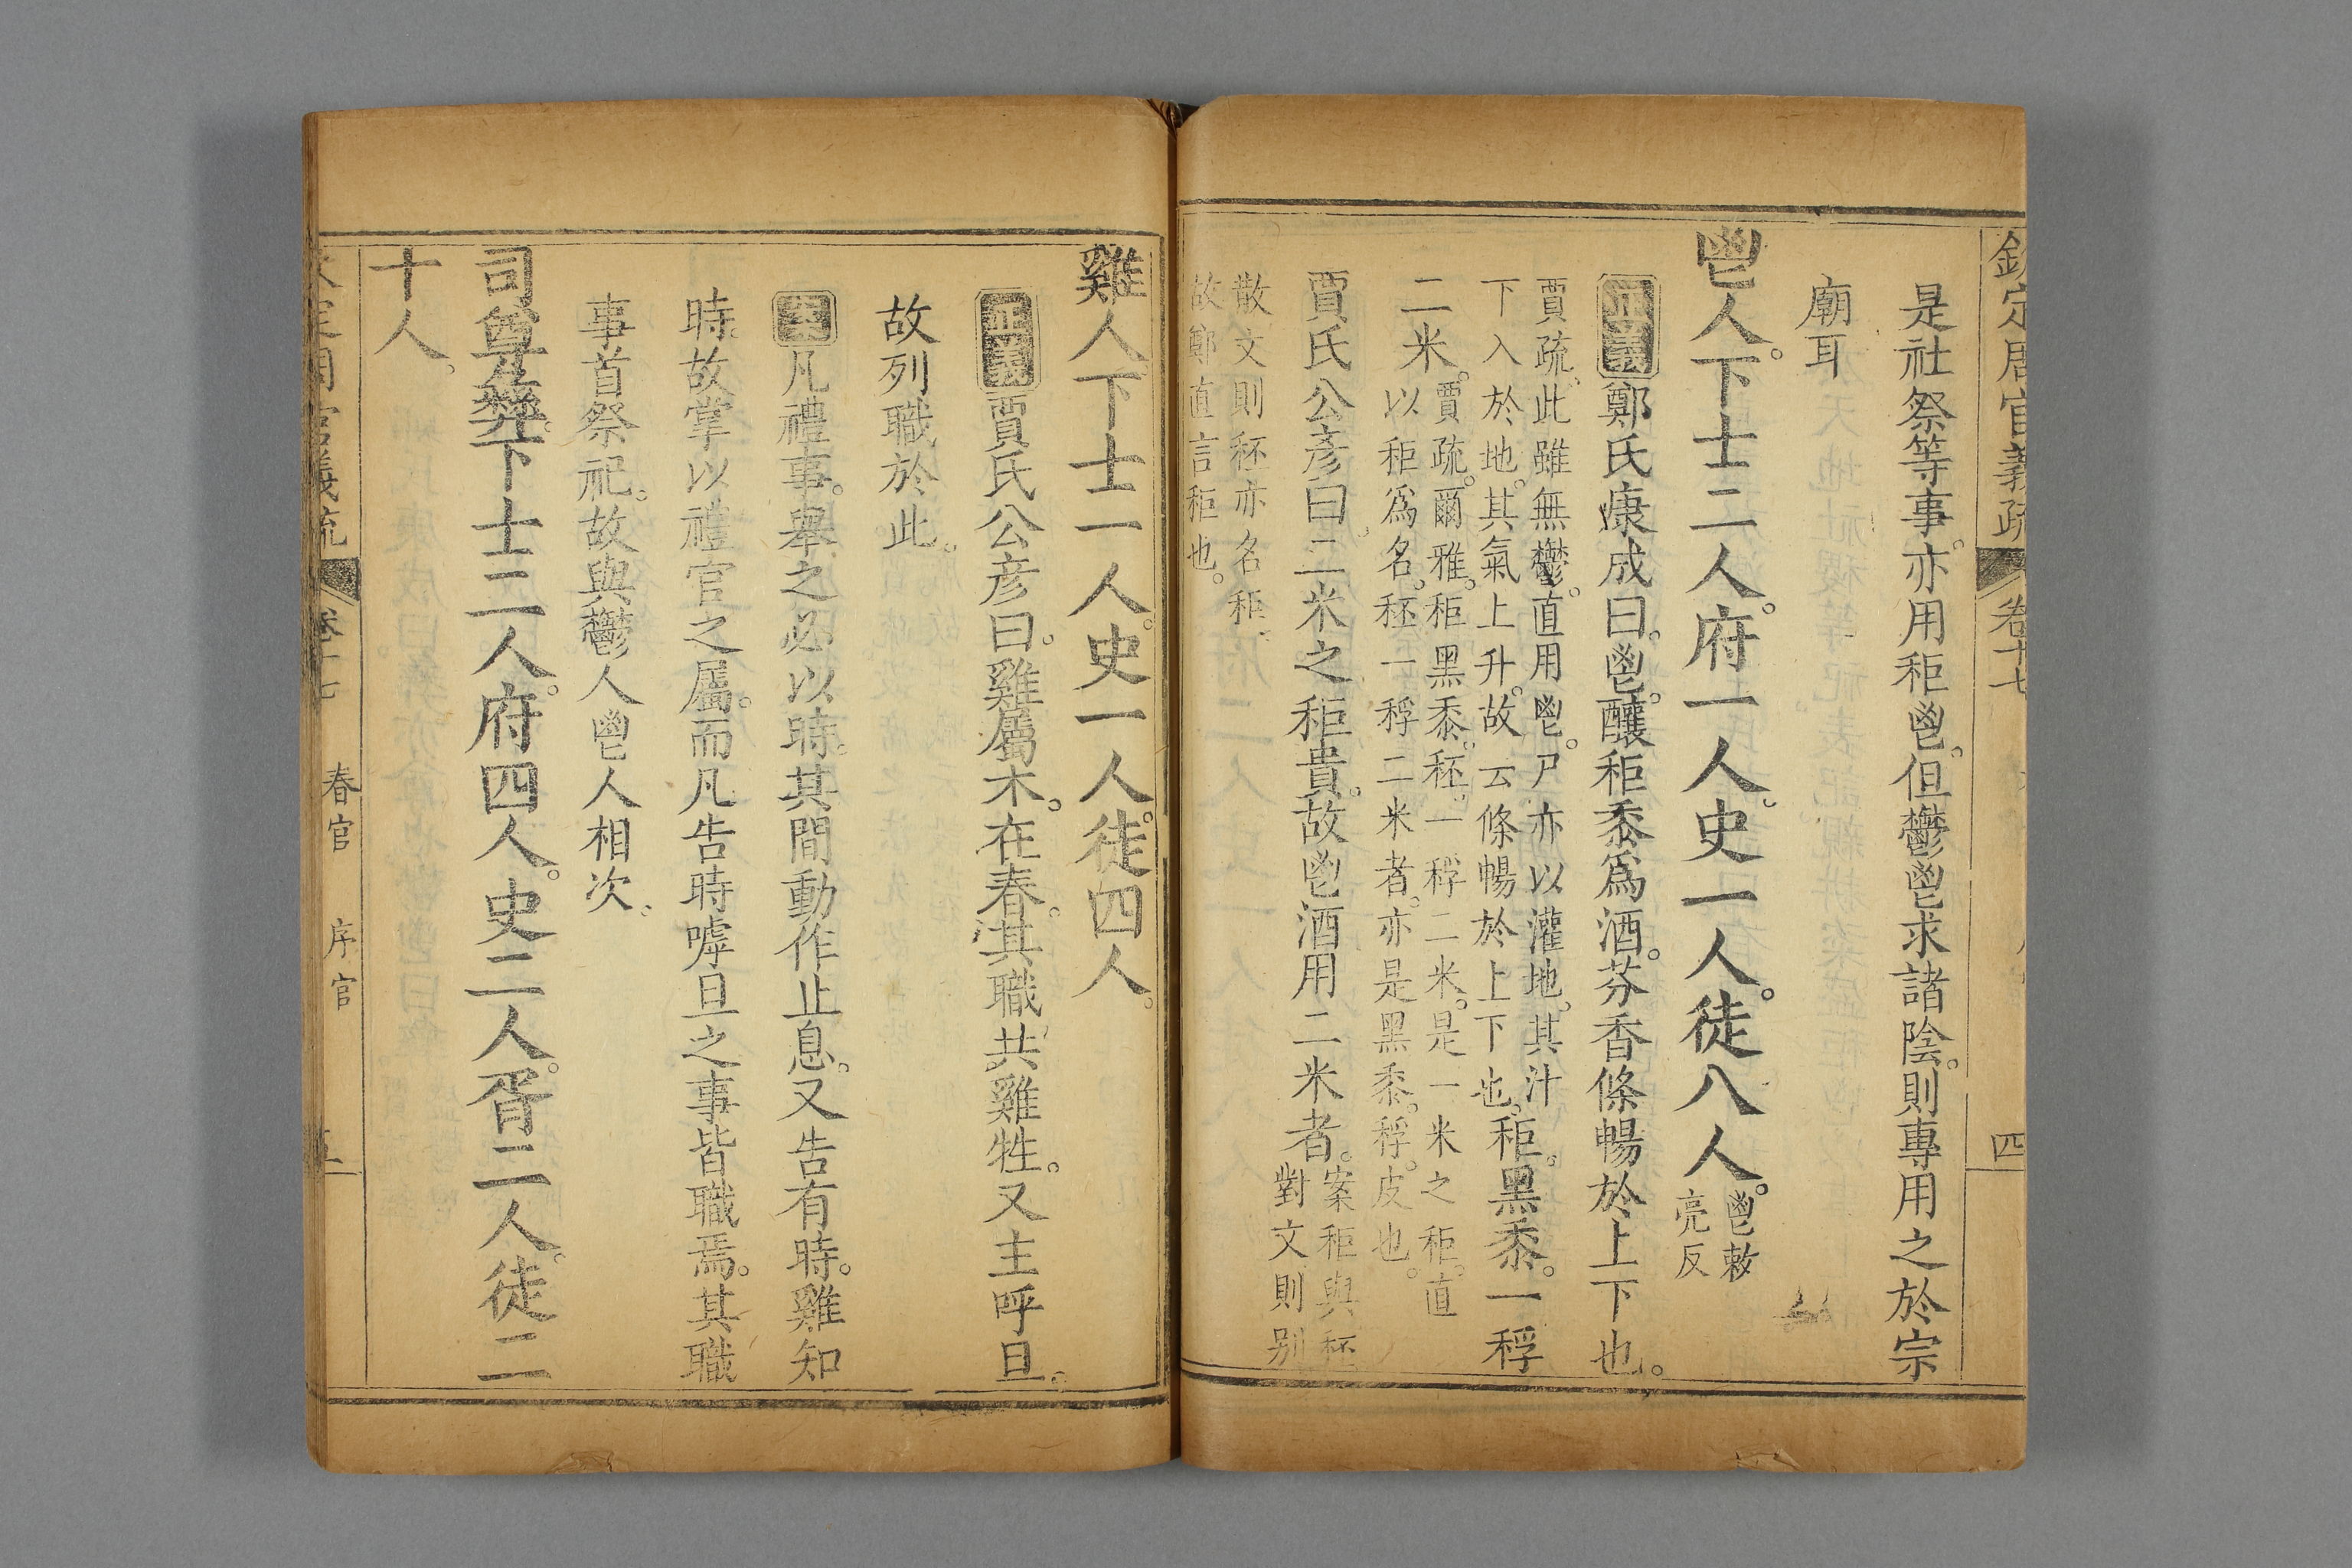 欽定周官義疏 卷十七 四
是社祭等事。亦用秬鬯。但鬱鬯求諸陰。則專用之於宗
廟耳
鬯人。下士二人。府一人。史一人。徒八人。鬯敕
亮反
正義鄭氏康成曰。鬯。釀秬黍爲酒。芬香條暢於上下也。
賈疏。此雖無鬱。直用鬯。尸亦以灌地。其汁
下入於地。其氣上升。故云條暢於上下也。秬。黑黍。一稃
二米。賈疏。爾雅。秬黑黍。秠。一稃二米。是一米之秬。直
以秬爲名。秠一稃二米者。亦是黑黍。稃。皮也。
賈氏公彦曰。二米之秬貴。故鬯酒用二米者。案秬與秠
對文則别
散文則秠亦名秬。
故鄭直言秬也。
雞人。下士一人。史一人。徒四人。
正義賈氏公彦曰。雞屬木。在春。其職共雞牲。又主呼旦。
故列職於此。
案凡禮事。舉之必以時。其間動作止息。又告有時。雞知
時。故掌以禮官之屬。而凡告時嘑旦之事皆職焉。其職
事首祭祀。故與鬱人鬯人相次。
司尊彝。下士二人。府四人。史二人。胥二人。徒二
十人。
周官義疏 卷十七 春官 序官